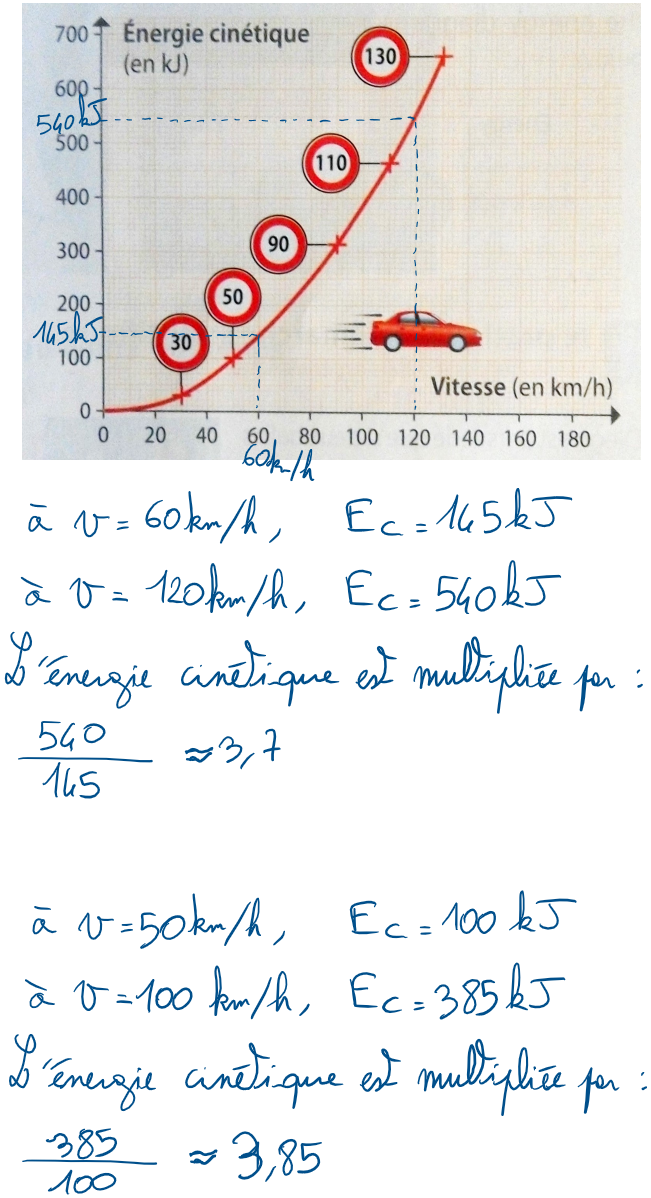 700
Énergie cinétique
(en kJ)
130
600
540kJ
500
110
400
90
300
50
200
145kJ
30
100
Vitesse (en km/h)
0
0 20 40 60 80 100 120 140 160 180
60km/h
à v = 60km/h, Ec = 145kJ
à v = 120km/h, Ec = 540kJ
L'énergie cinétique est multipliée par :
540
145
≈ 3,7
à v = 50km/h, Ec = 100 kJ
à v = 100 km/h, Ec = 385kJ
L'énergie cinétique est multipliée par :
385
100
≈ 3,85